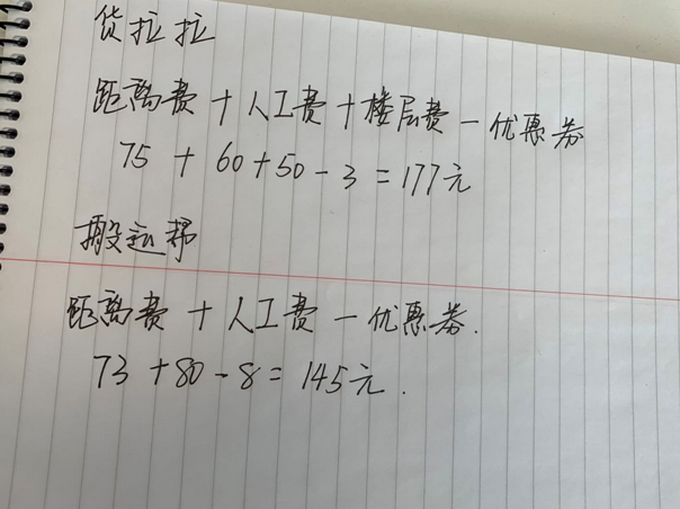 货拉拉
距离费+人工费+楼层费-优惠券
75+60+50-3=177元
搬运帮
距离费+人工费-优惠券.
73+80-8=145元.